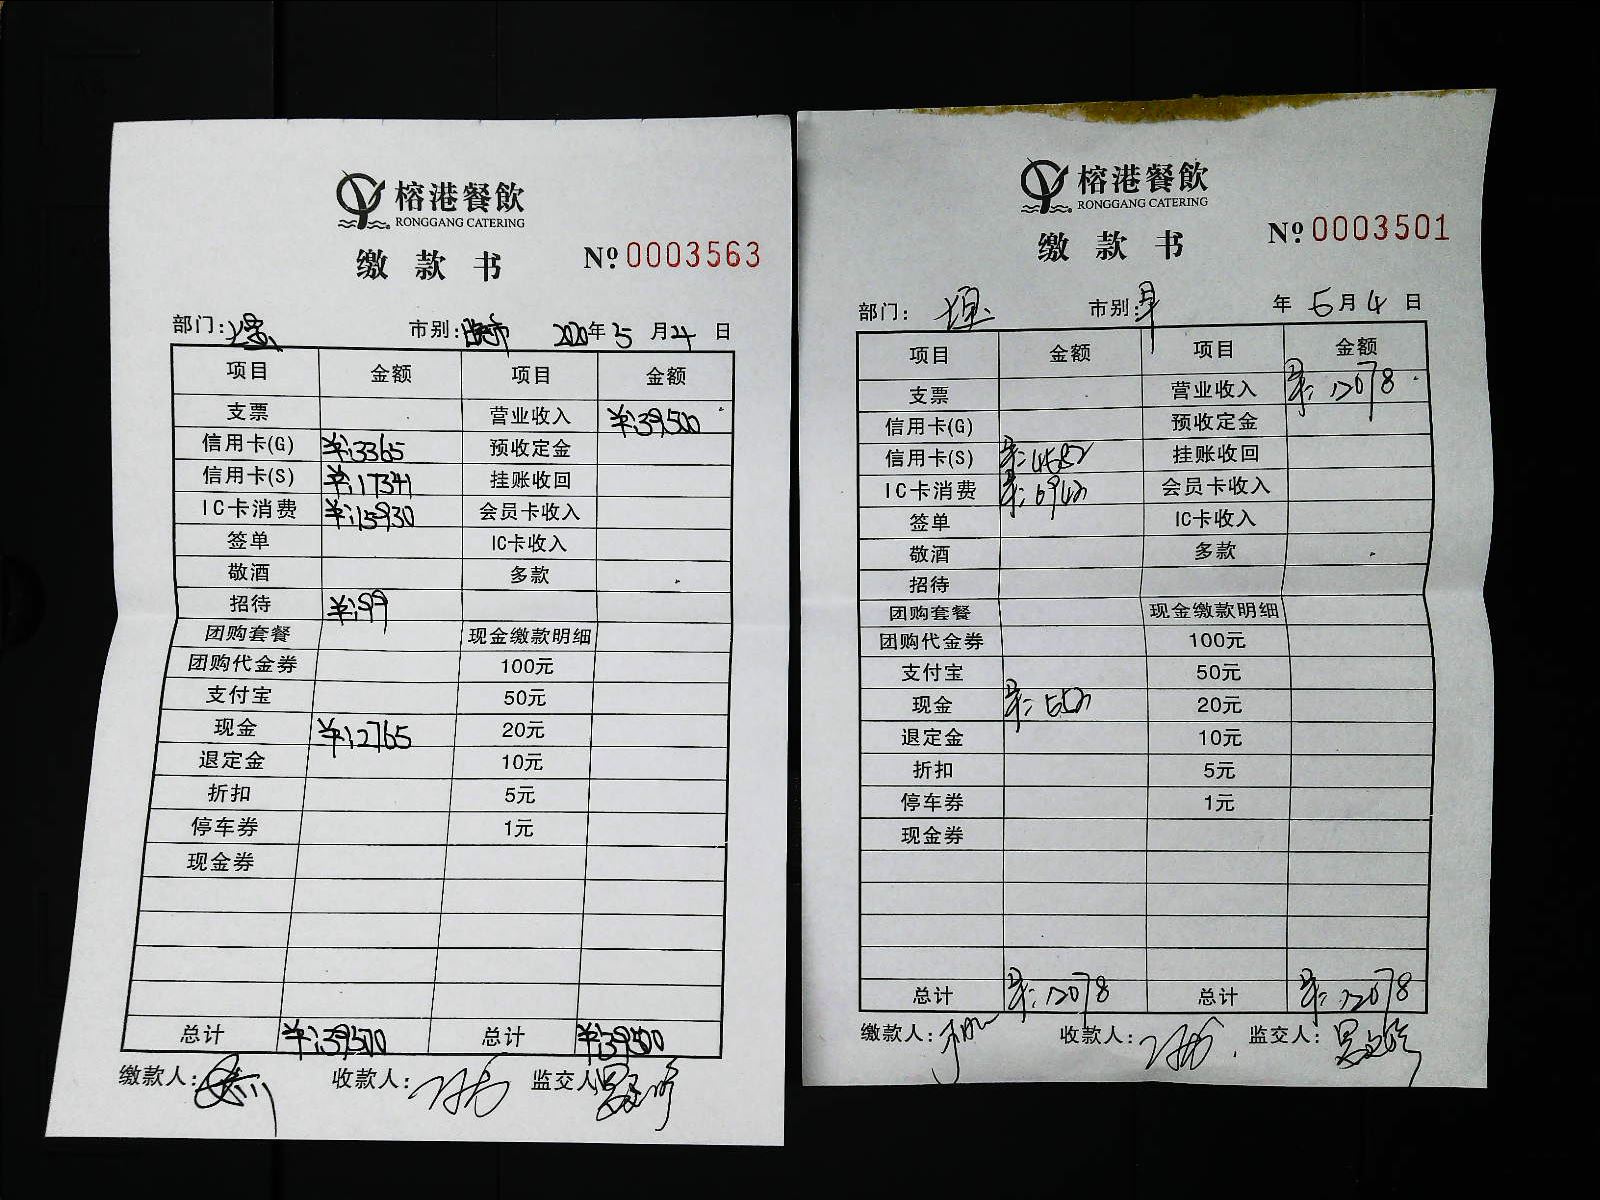 榕港餐飲
RONGGANG CATERING
缴款书
№ 0003563
部门:
市别: 晚市 2020年5月 日
项目 金额 项目 金额
支票 营业收入 ¥:39500
信用卡(G) ¥:3365 预收定金
信用卡(S) ¥:17341 挂账收回
IC卡消费 ¥:15930 会员卡收入
签单 IC卡收入
敬酒 多款
招待 ¥:99
团购套餐 现金缴款明细
团购代金券 100元
支付宝 50元
现金 ¥:2765 20元
退定金 10元
折扣 5元
停车券 1元
现金券
总计 ¥:39500 总计 ¥:39500
缴款人: 收款人: 监交人:
榕港餐飲
RONGGANG CATERING
缴款书
№ 0003501
部门: 市别: 年 5月4日
项目 金额 项目 金额
支票 营业收入 ¥:12078
信用卡(G) 预收定金
信用卡(S) ¥:4582 挂账收回
IC卡消费 会员卡收入
签单 IC卡收入
敬酒 多款
招待
团购套餐 现金缴款明细
团购代金券 100元
支付宝 50元
现金 20元
退定金 10元
折扣 5元
停车券 1元
现金券
总计 ¥:12078 总计 ¥:12078
缴款人: 收款人: 监交人: